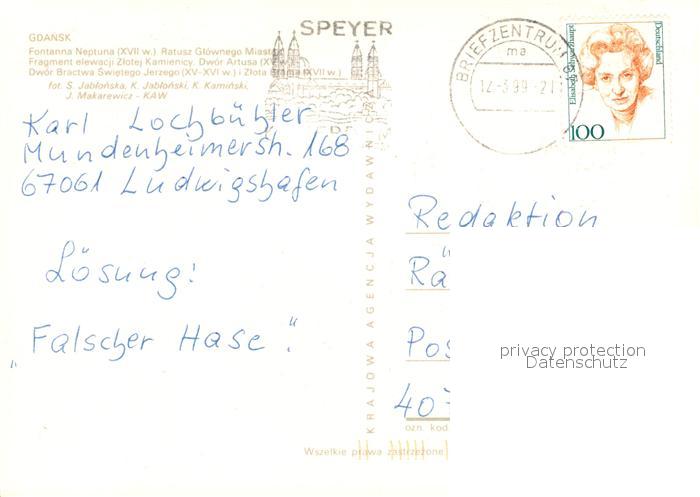 GDAŃSK
Fontanna Neptuna (XVII w.) Ratusz Głównego Miasta
Fragment elewacji Złotej Kamienicy. Dwór Artusa (XV
Dwór Bractwa Świętego Jerzego (XV-XVI w.) i Złota Brama (XVII w.)
fot. S. Jabłońska, K. Jabłoński, K. Kamiński,
J. Makarewicz - KAW
SPEYER
BRIEFZENTRUM
ma
12-3.99-21
Elisabeth Schwarzhaupt
Deutschland
100
Karl Lochbühler
Mundenheimerstr. 168
67061 Ludwigshafen
Lösung:
"Falscher Hase".
KRAJOWA AGENCJA WYDAWNICZA
Redaktion
Rä
Pos
407
ozn. kod
Wszelkie prawa zastrzeżone
privacy protection
Datenschutz